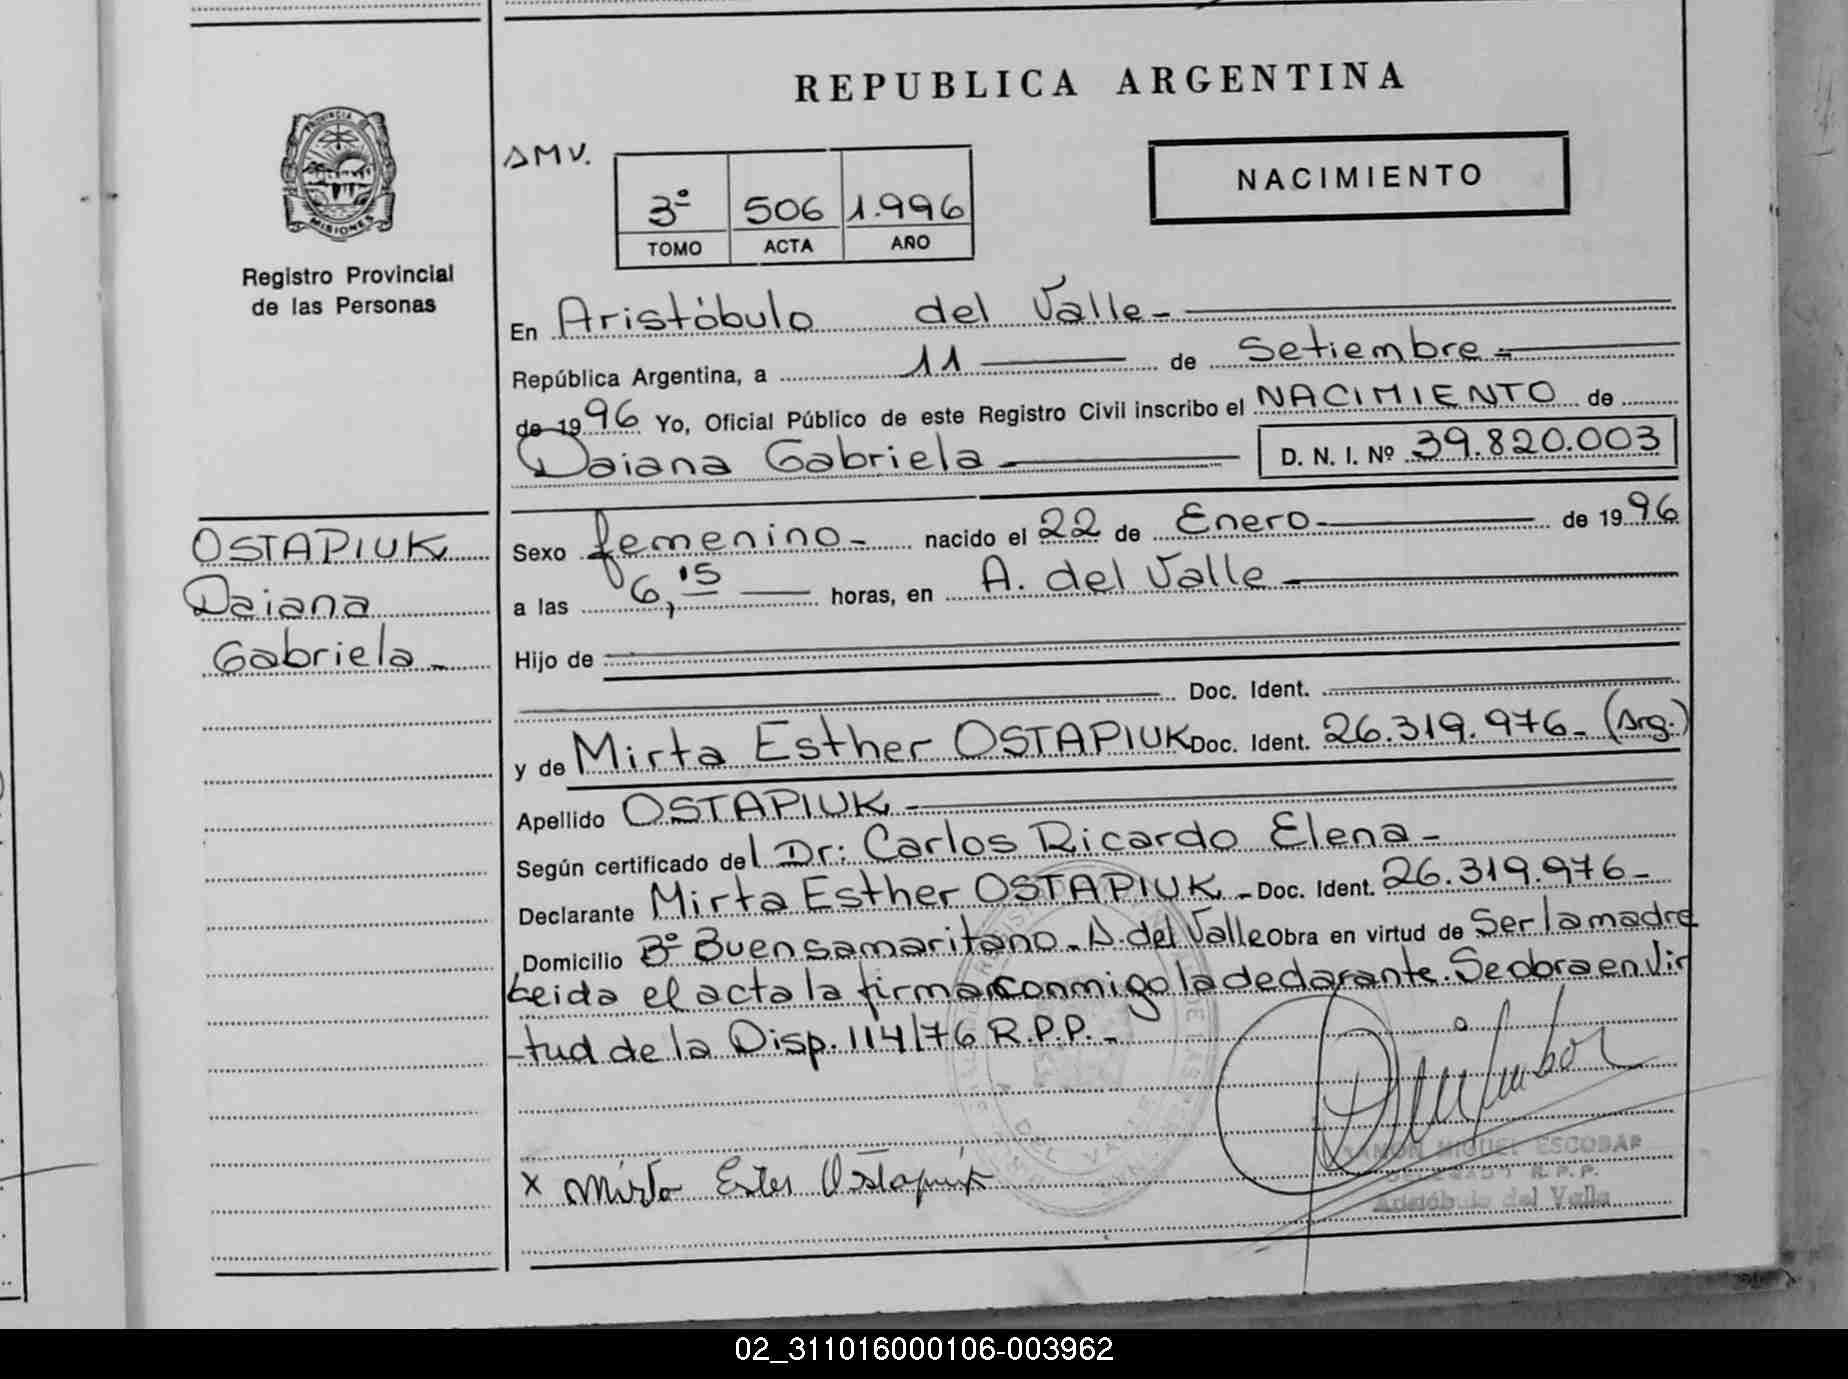 REPUBLICA ARGENTINA
PROVINCIA
MISIONES
Registro Provincial
de las Personas
AMV.
3º 506 1.996
TOMO ACTA AÑO
NACIMIENTO
En Aristóbulo del Valle-
República Argentina, a 11 de Setiembre-
de 1996 Yo, Oficial Público de este Registro Civil inscribo el NACIMIENTO de
Daiana Gabriela D. N. I. Nº 39.820.003
OSTAPIUK
Daiana
Gabriela-
Sexo femenino- nacido el 22 de Enero- de 1996
a las 6,15 horas, en A. del Valle-
Hijo de
Doc. Ident.
y de Mirta Esther OSTAPIUK Doc. Ident. 26.319.976- (Arg.)
Apellido OSTAPIUK-
Según certificado del Dr: Carlos Ricardo Elena-
Declarante Mirta Esther OSTAPIUK- Doc. Ident. 26.319.976-
Domicilio Bº Buen samaritano- A. del Valle Obra en virtud de Ser la madre
Leida el acta la firma conmigo la declarante. Se obra en vir
-tud de la Disp. 114/76 R.P.P.-
x Mirta Ester Ostapiuk
RAMON MIGUEL ESCOBAR
DELEGADO R.P.P.
Aristóbulo del Valle
02_311016000106-003962